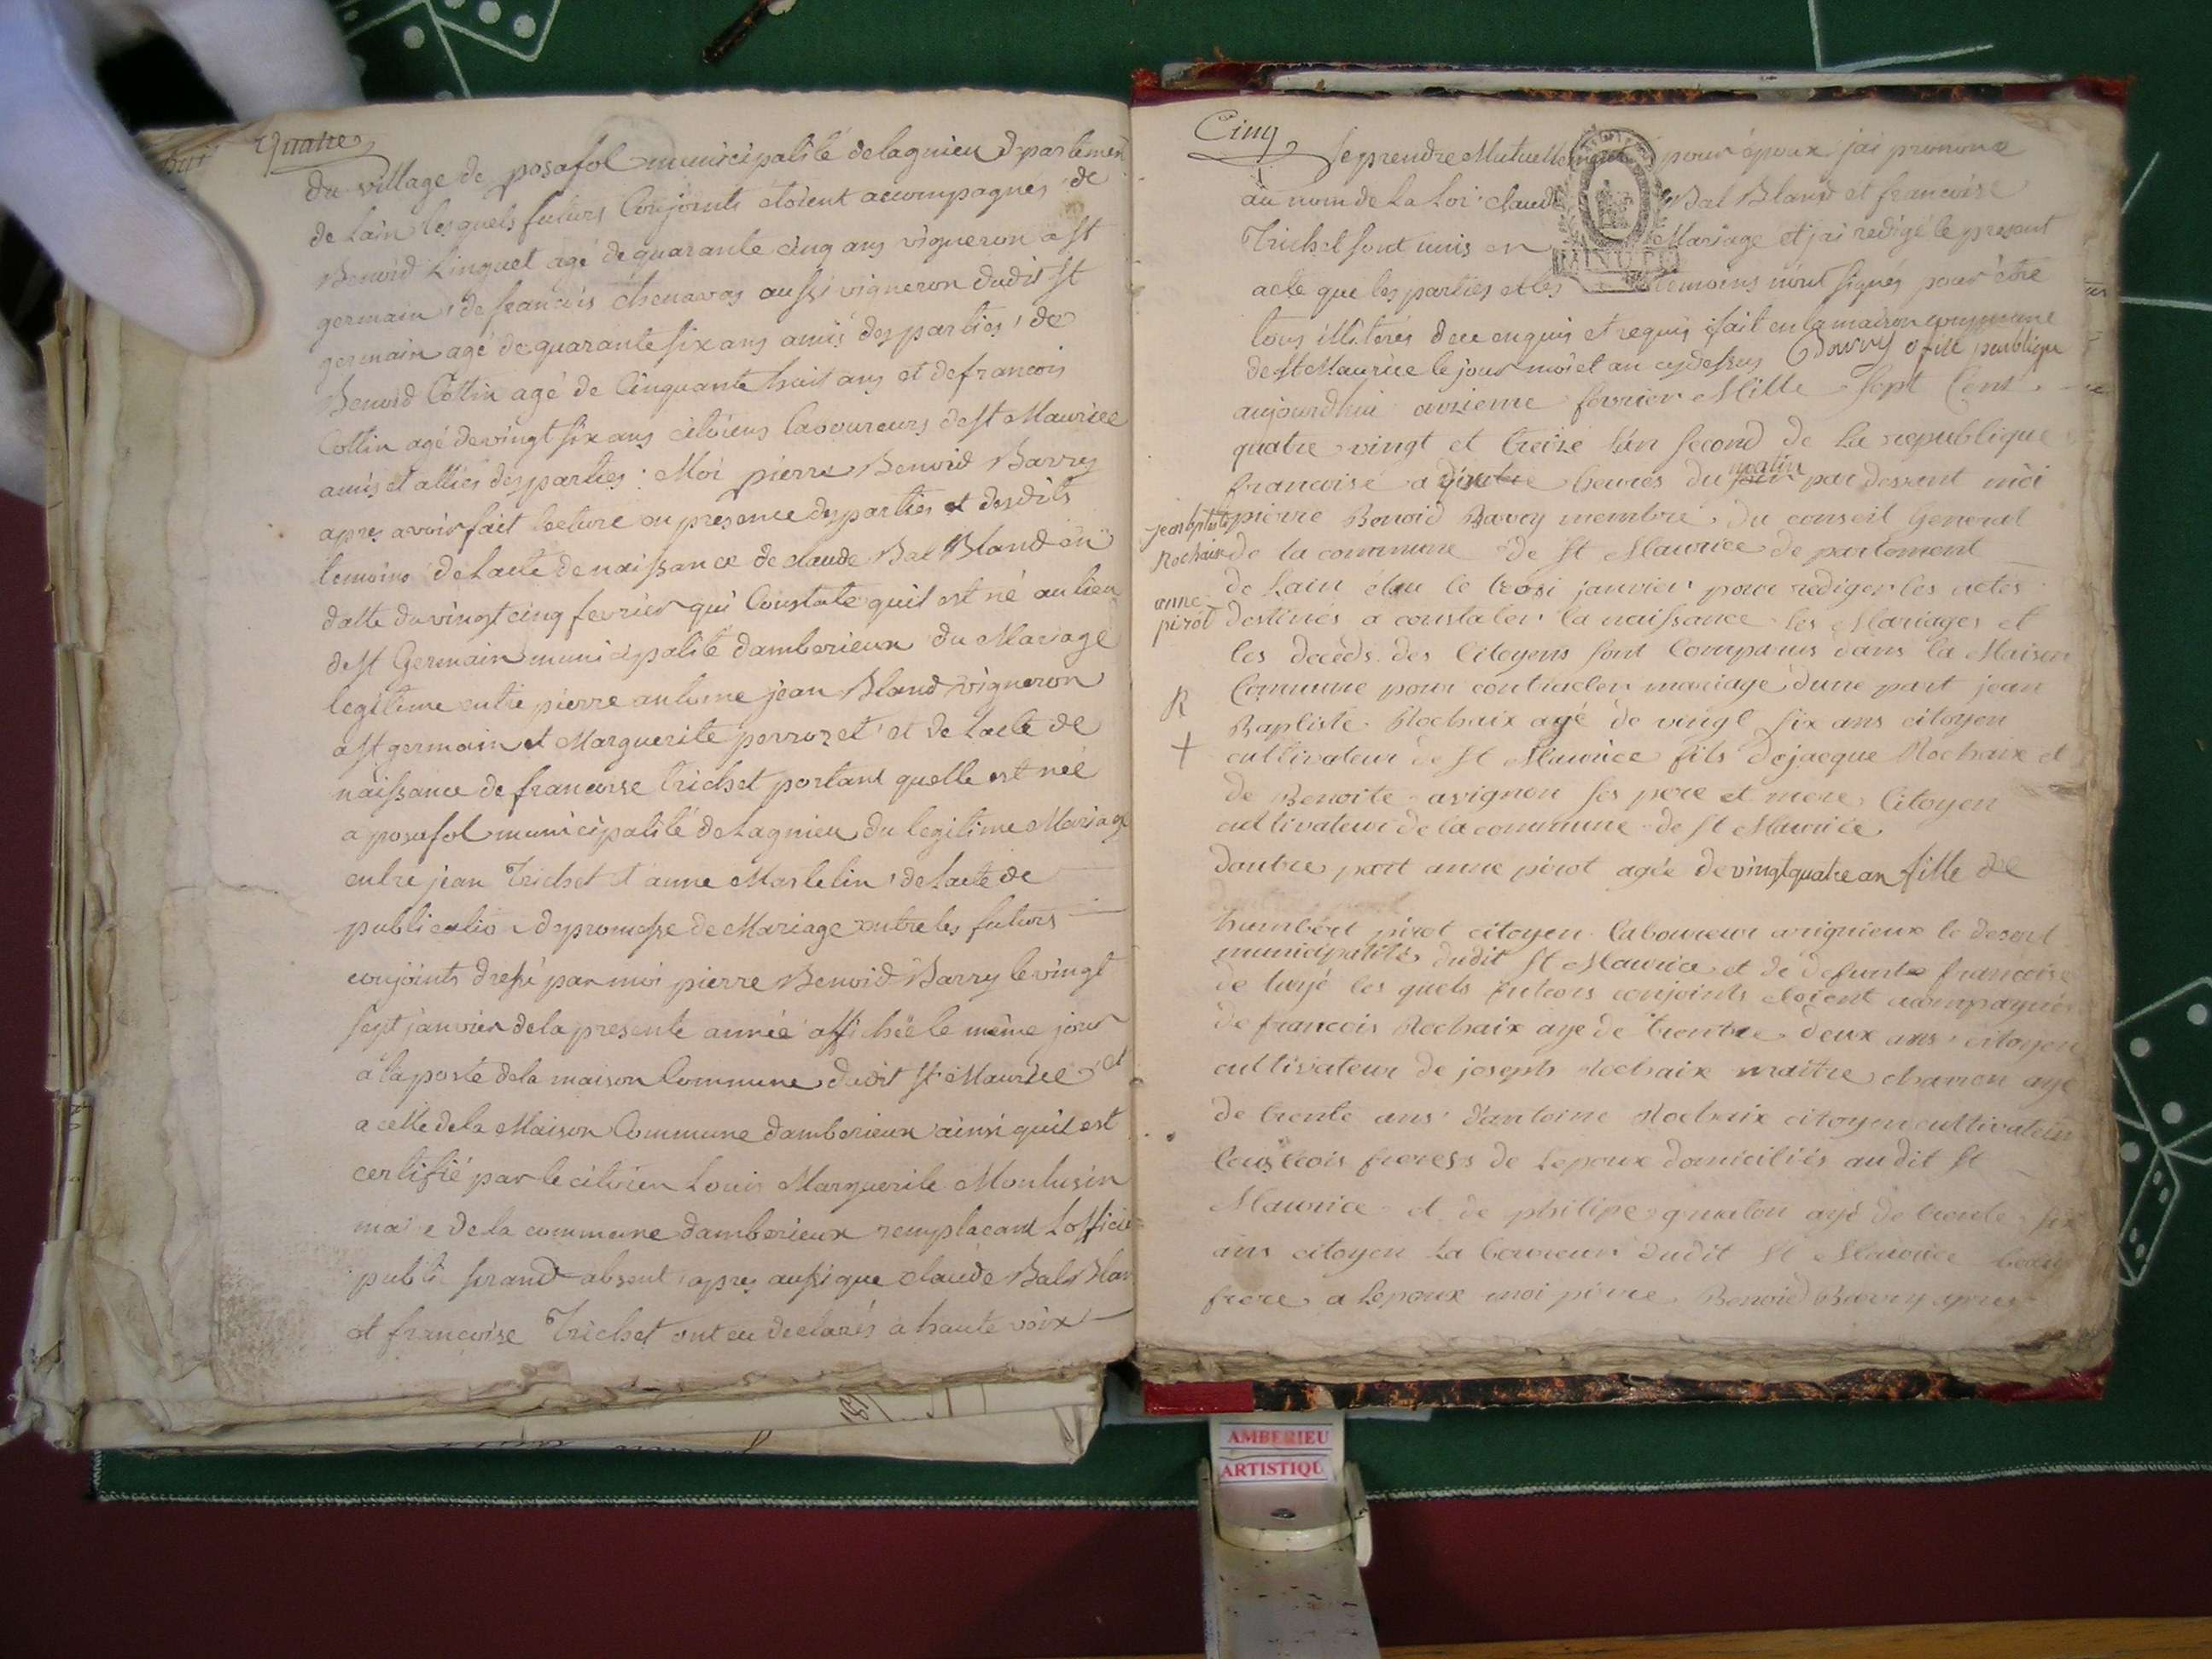 huit
quatre
du village de posafol municipalité de lagnieu departemen
de Lain lesquels futurs Conjoints étoient accompagnés de
Benoid Linquet agé de quarante cinq ans vigneron a st
germain, de francois chenavas aussi vigneron dudit st
germain agé de quarante six ans amis des parties, de
Benoid Cottin agé de Cinquante huit ans et de francois
Cottin agé de vingt six ans citoiens laboureurs de st Maurice
amis et alliés des parties : Moi pierre Benoid Barry
apres avoir fait lecture en presence des parties et desdits
temoins de Lacte de naissance de claude Bal Bland en
datte du vingt cinq fevrier qui Constate quil est né au lieu
de st Germain municipalité damberieux du Mariage
legitime entre pierre antoine jean Bland vigneron
a st germain et Marguerite perrozet et de Lacte de
naissance de francoise Trichet portant quelle est née
a posafol municipalité de Lagnieu du legitime Mariage
entre jean Trichet et anne Martelin, de Lacte de
publicatio de promesse de Mariage entre les futurs
conjoints dressé par moi pierre Benoid Barry le vingt
sept janvier de la presente année affichée le même jour
à la porte de la maison Commune dudit st Maurice et
a celle de la Maison Commune damberieux ainsi quil est
certifié par le citoien Louis Marguerite Monlusin
maire de la commune damberieux remplacant Loffici
public absent, apres aussi que claude Bal Blan
et francoise Trichet ont eu declarés à haute voix
Cinq
se prendre Mutuellement pour époux jai prononcé
au nom de La Loi claude Bal Bland et francoise
Trichet sont unis en Mariage et jai redigé le present
MINUTE
acte que les parties et les temoins nont signés pour être
tous illiterés de ce enquis et requis fait en la maison commune
de st Maurice le jour mois et an cy dessus Barry offi publique
aujourdhui onzieme fevrier Mille sept Cent
quatre vingt et treize lan second de la republique
francoise a heures du matin par dessent moi
jean baptiste
Rochaix
pierre Benoid Barry membre du conseil General
de la commune de st Maurice departement
de Lain élu le trosi janvier pour rediger les actes
anne
pirot
destinés a constater la naissance les Mariages et
les decèds des Citoyens sont Comparus dans la Maison
Commune pour contracter mariage dune part jean
R
Baptiste Rochaix agé de vingt six ans citoyen
+
cultivateur de st Maurice fils de jacque Rochaix et
de Benoite avignon ses pere et mere Citoyen
cultivateur de la commune de st Maurice
dautre part anne pirot agée de vingt quatre an fille de
humbért pirot citoyen laboureur a rignieux le desert
municipalité dudit st Maurice et de defunte francoise
de luyé les quels futurs conjoints etoient acompagnés
de francois Rochaix age de trentre deux ans citoyen
cultivateur de joseph Rochaix maître charron age
de trente ans dantoine Rochaix citoyen cultivateur
tous trois freres de Lepoux domiciliés audit st
Maurice et de philipe agé de trente six
ans citoyen La boureur dudit st Maurice beau
frere a Lepoux moi pierre Benoid Barry apres
AMBERIEU
ARTISTIQU